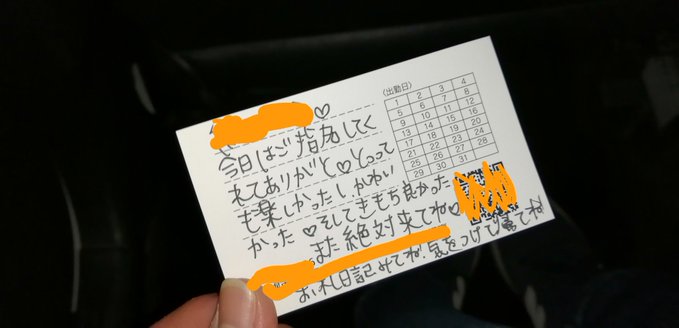 ♡
今日はご指名してく
れてありがと♡とって
も楽しかったしかわい
かった♡そしてきもち良かった
また絶対来てね♡
お礼日記みてね!気をつけて帰ってね
(出勤日)
1 2 3 4
5 6 7 8
9 10 11 12
13 14 15 16
17 18 19 20
21 22 23 24
25 26 27 28
29 30 31